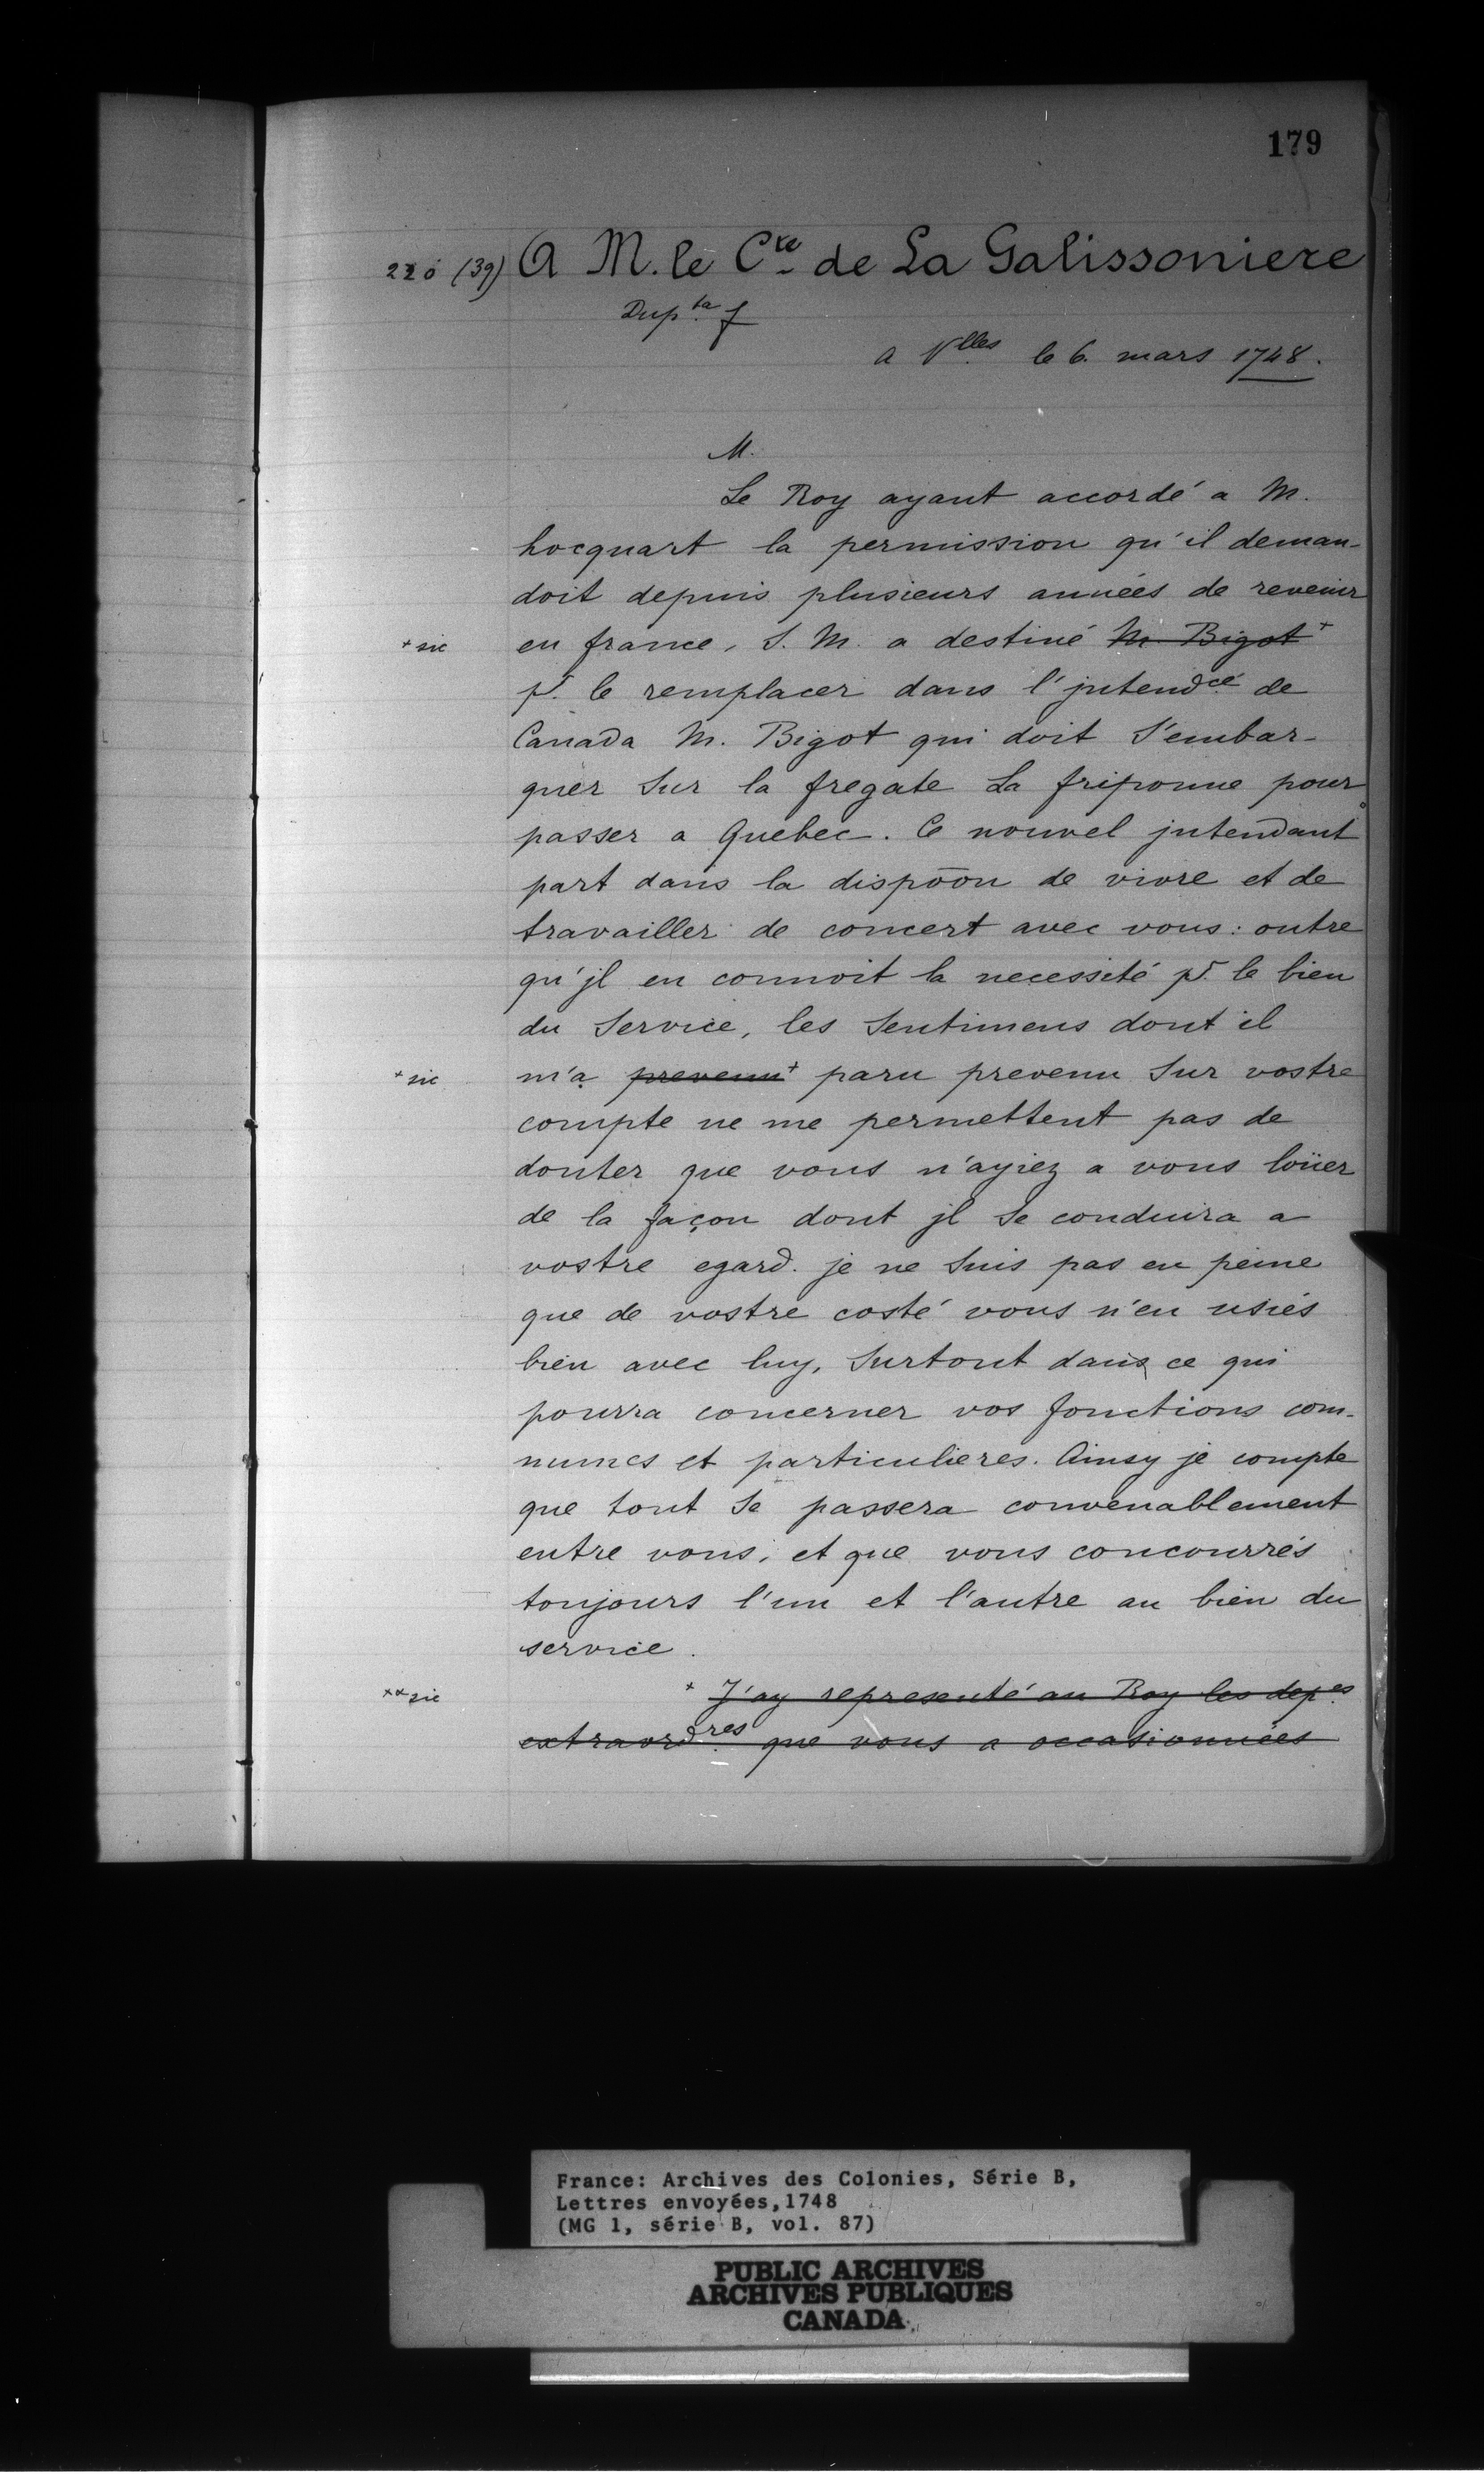 179
220 (39) A M. le Cte de La Galissoniere
Dup.ta f
a Vlles le 6. mars 1748.
M.
Le Roy ayant accordé a M.
hocquart la permission qu'il deman-
doit depuis plusieurs années de revenir
+ sic en france, S. M. a destiné M. Bigot +
pr. le remplacer dans l'jntendce de
Canada M. Bigot qui doit S'embar-
quer Sur la fregate La friponne pour
passer a Quebec. Ce nouvel jntendant
part dans la dispōon de vivre et de
travailler de concert avec vous: outre
qu'jl en connoit la necessité pr. le bien
du Service, les Sentimens dont il
+ sic m'a prevenu + paru prevenu Sur vostre
compte ne me permettent pas de
douter que vous n'ayiez a vous loüer
de la façon dont jl Se conduira a
vostre egard. je ne Suis pas en peine
que de vostre costé vous n'en usiés
bien avec luy, Surtout dans ce qui
pourra concerner vos fonctions com-
munes et particulieres. Ainsy je compte
que tout Se passera convenablement
entre vous, et que vous concourrés
toujours l'un et l'autre au bien du
service.
++ sic + J'ay representé au Roy les depes
extraordres que vous a occasionnées
France: Archives des Colonies, Série B,
Lettres envoyées,1748
(MG 1, série B, vol. 87)
PUBLIC ARCHIVES
ARCHIVES PUBLIQUES
CANADA